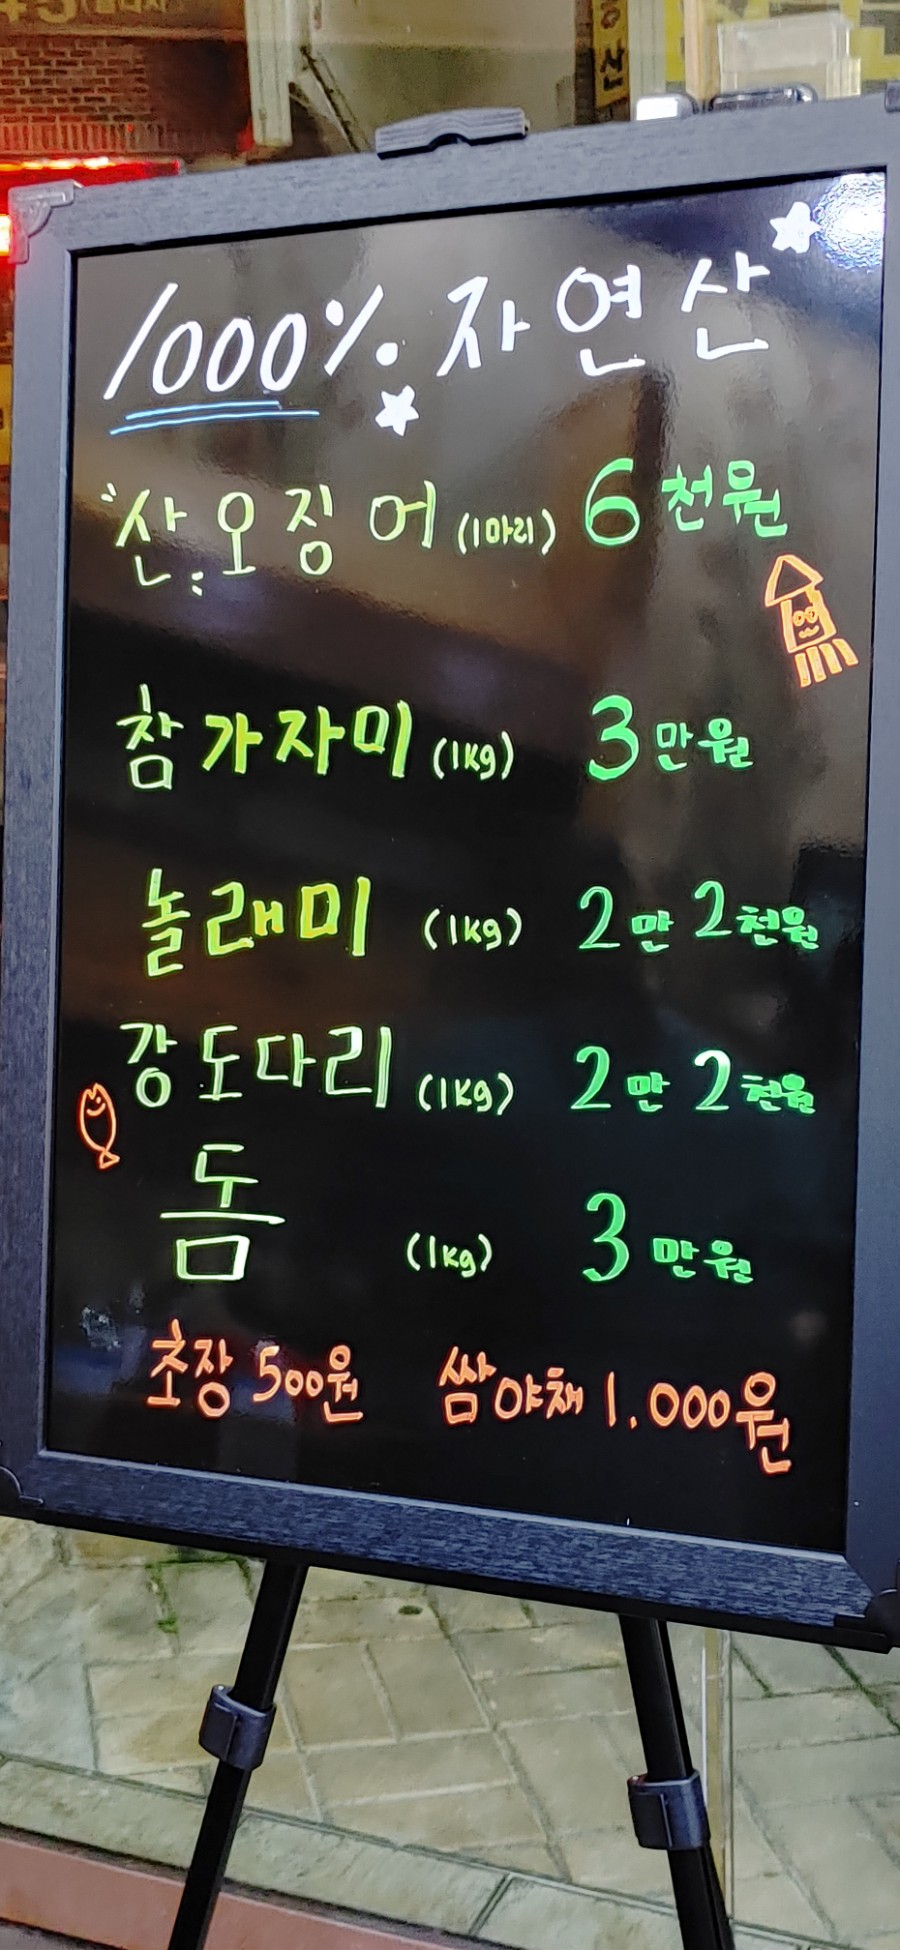 1000% 자연산
"산" 오징어 (1마리) 6천원
참가자미 (1kg) 3만원
놀래미 (1kg) 2만 2천원
강도다리 (1kg) 2만 2천원
돔 (1kg) 3만원
초장 500원 쌈야채 1.000원